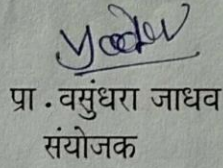 प्रा . वसुंधरा जाधव
संयोजक